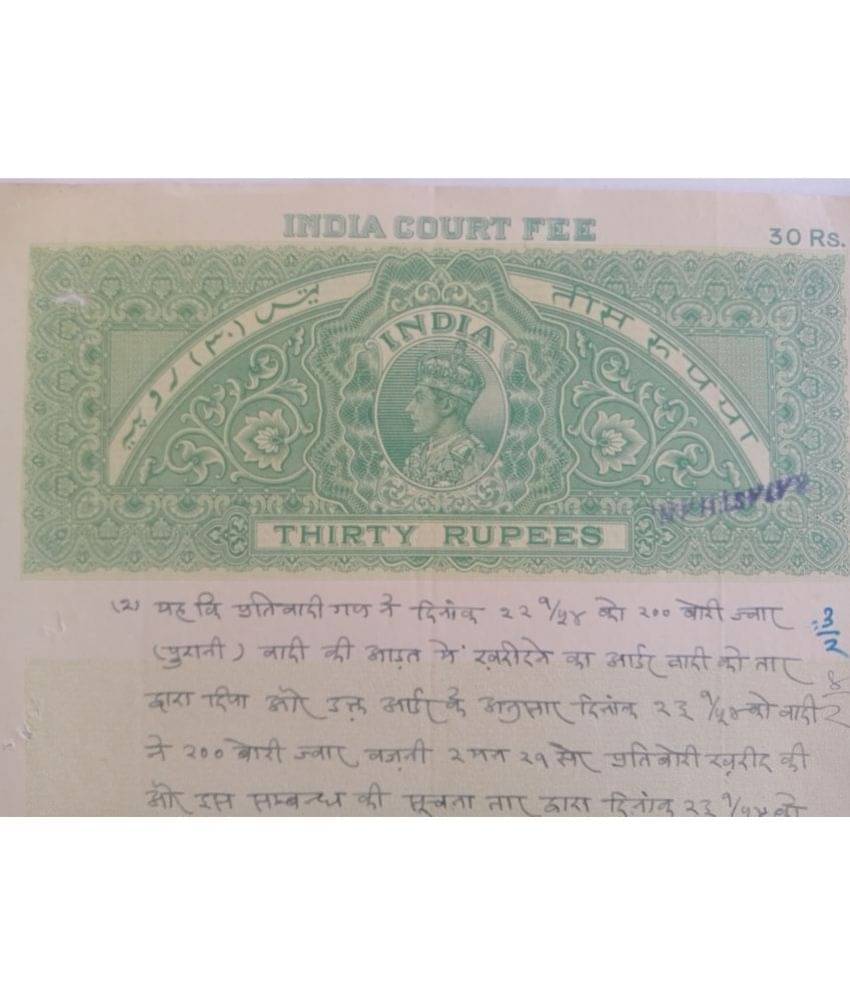 INDIA COURT FEE
30 Rs.
تیس (۳۰) روپیہ
INDIA
तीस रूपया
THIRTY RUPEES
(२) यह कि प्रतिवादी गण ने दिनांक २२ १/५४ को २०० बोरी ज्वार
(पुरानी) वादी की आड़त में खरीदने का आर्डर वादी को तार
द्वारा दिया और उक्त आर्डर के अनुसार दिनांक २३ १/५४ को वादी
ने २०० बोरी ज्वार, वज़नी २ मन २१ सेर प्रतिबोरी ख़रीद की
और इस सम्बन्ध की सूचना तार द्वारा दिनांक २३ १/५४ को
3/2